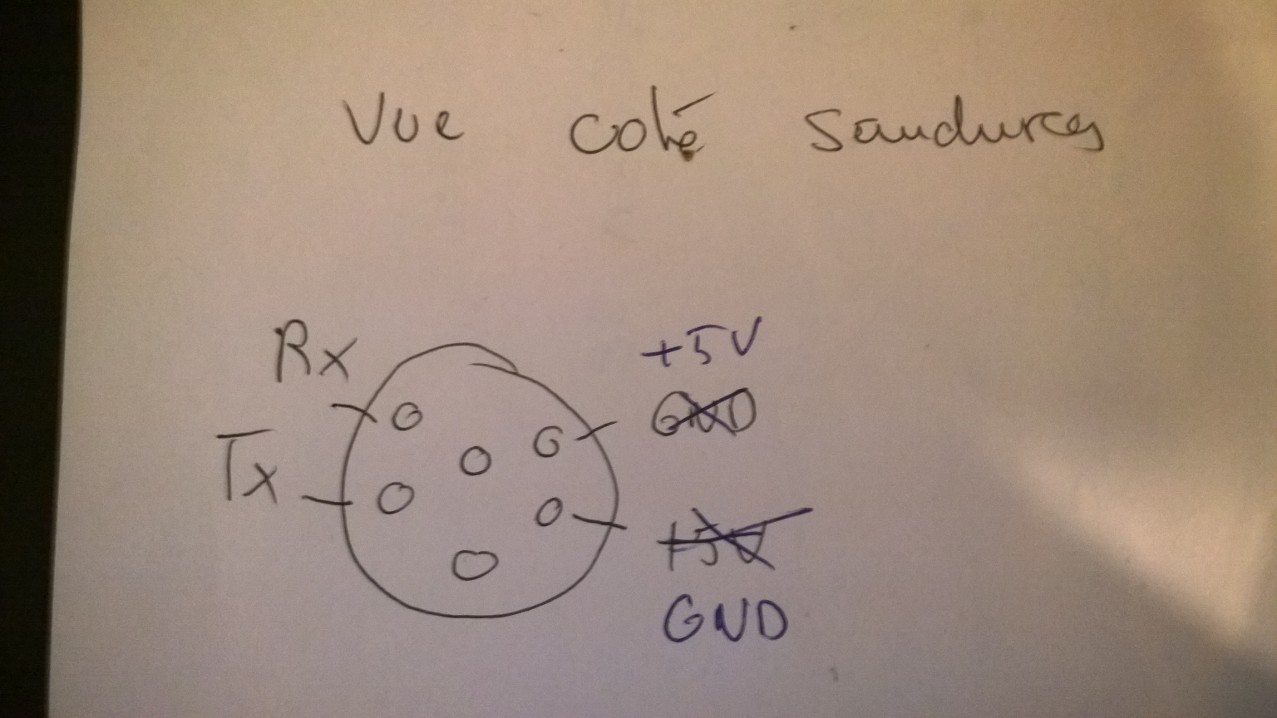 Vue coté Soudures
Rx
+5V
GND
Tx
+5V
GND